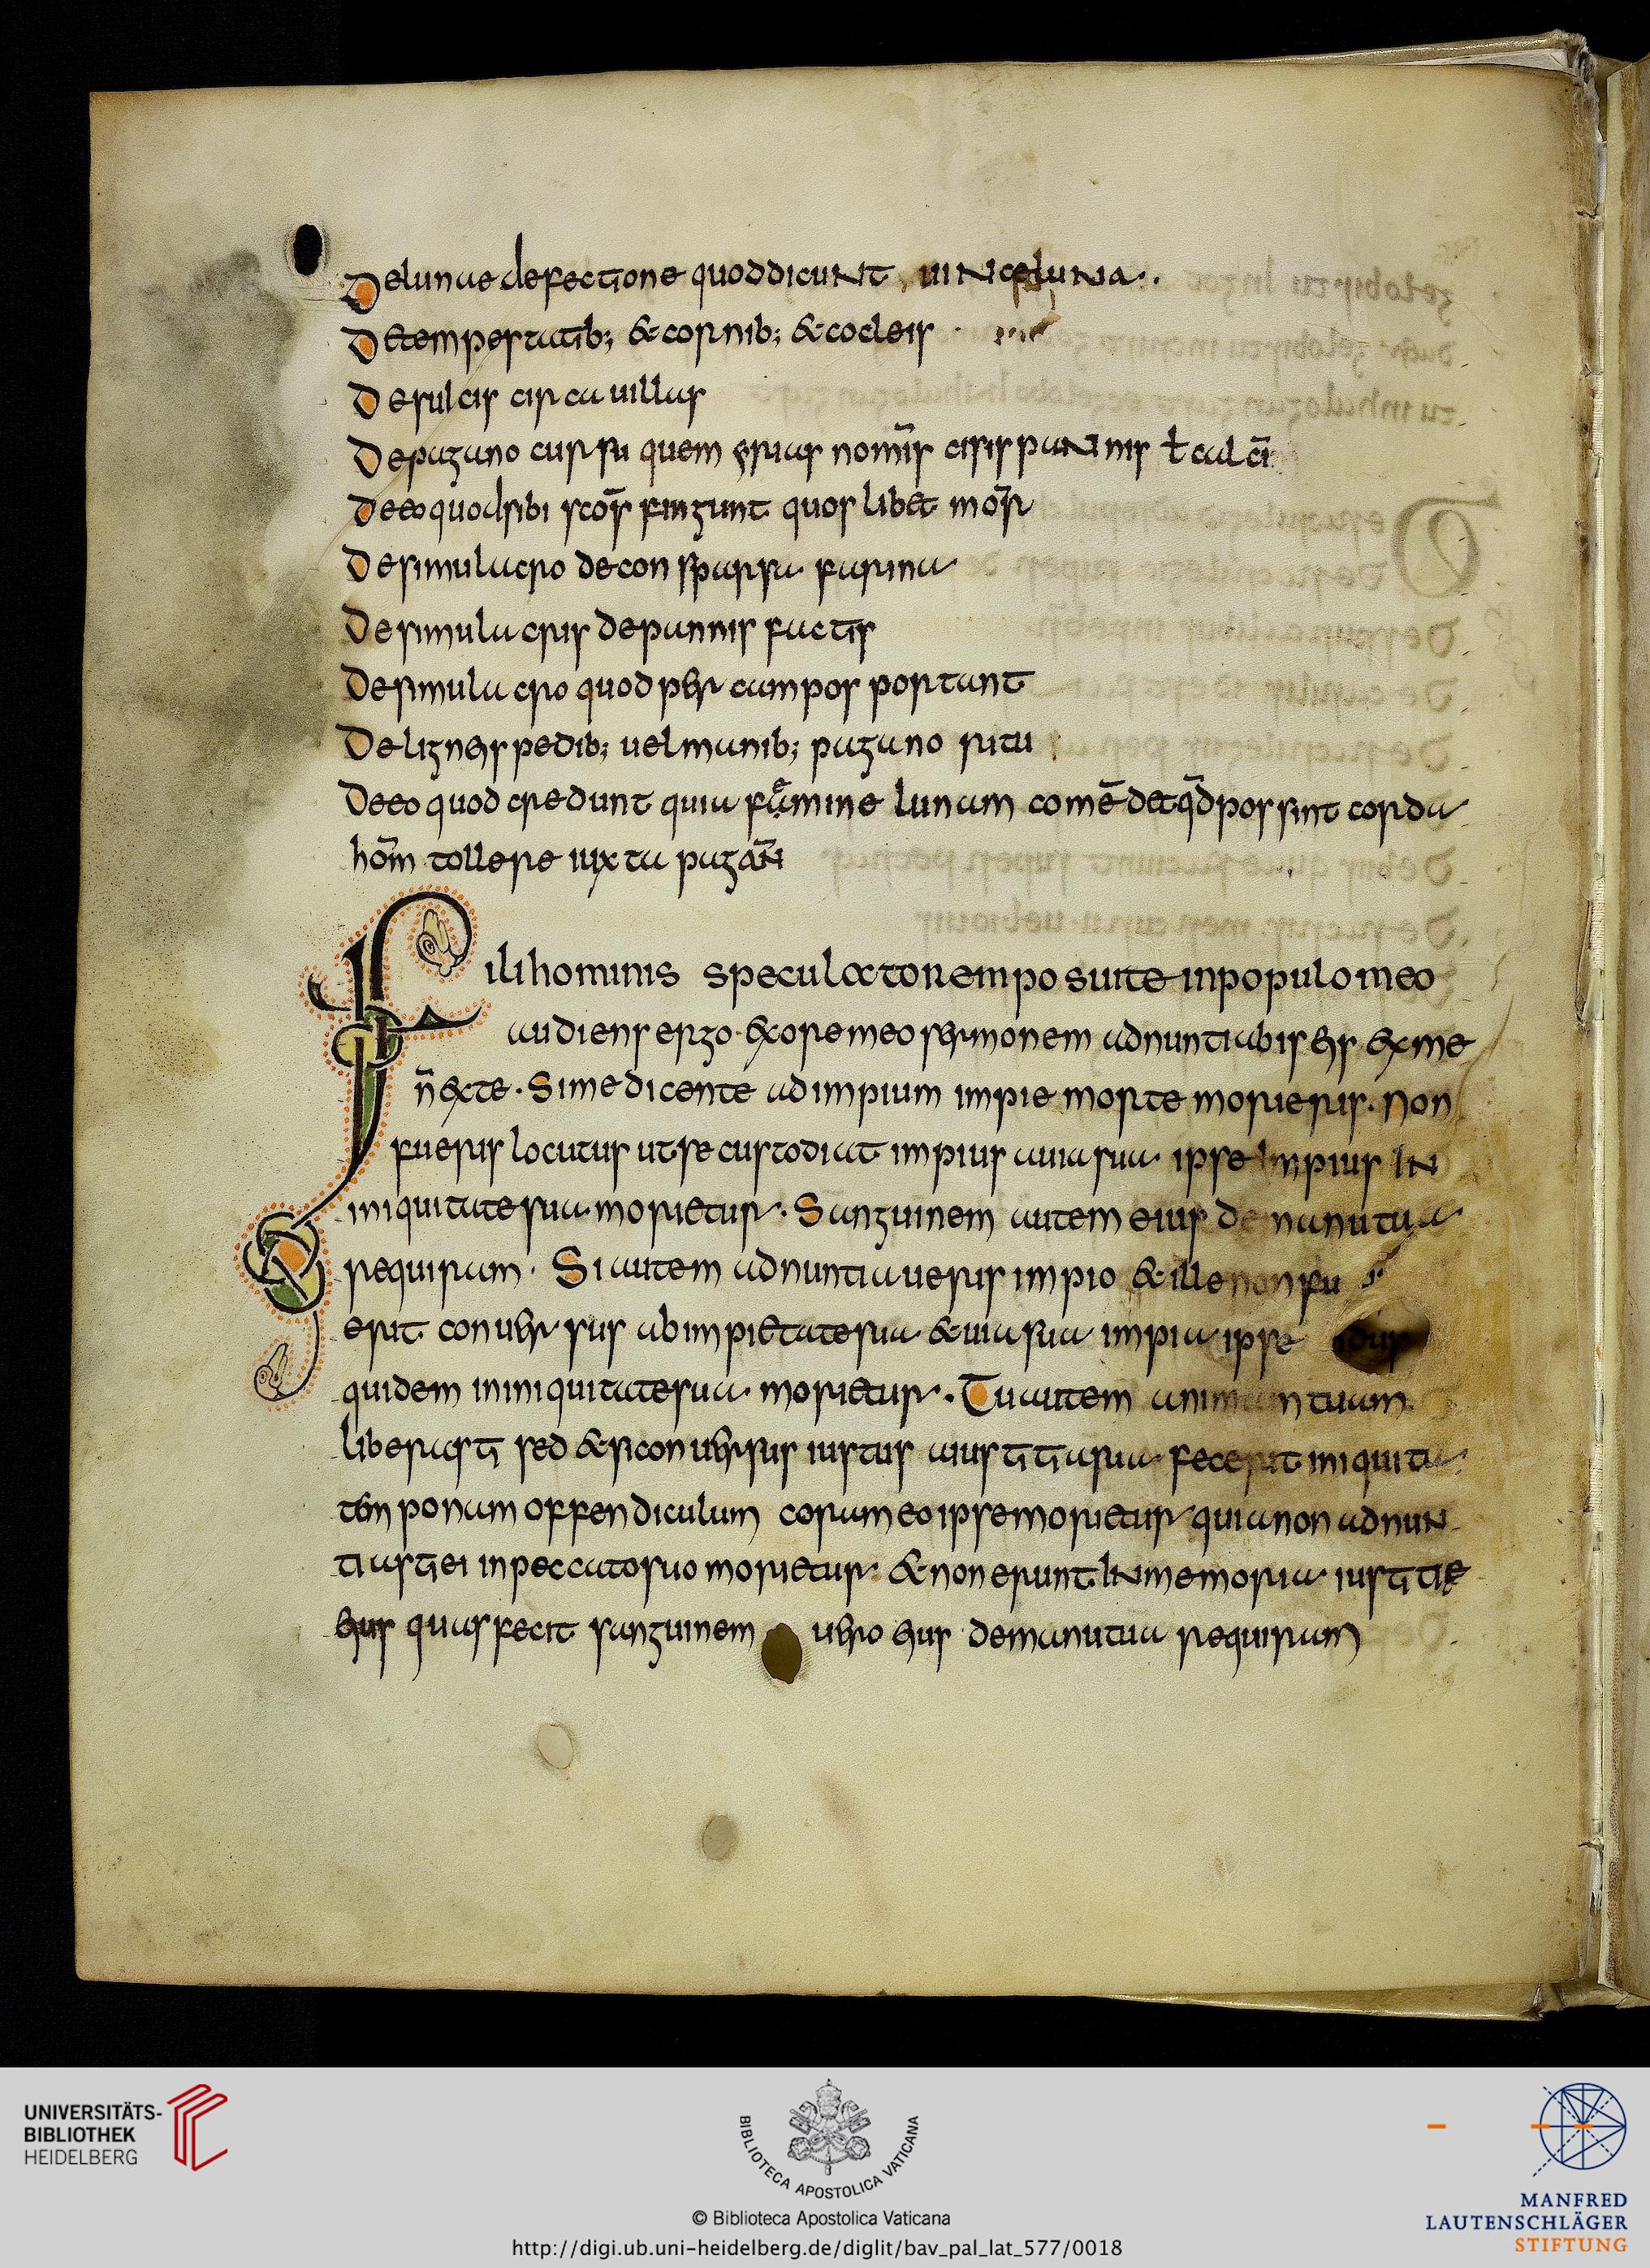 Delunae defectione quod dicunt, uinceluna.
Detempestatib; & cornib; & cocleis
Desulcis circa uillas
Depagano cursu quem yrias nomīs cisis pannis ł calcī
Deeo quod sibi scōs fingunt quos libet mor̄
Desimulacro deconsparsa farina
Desimulacris depannis factis
Desimulacro quod per campos portant
Deligneis pedib; uel manib; pagano ritu
Deeo quod credunt quia femine lunam comēdet qđ possint corda
hom̄ tollere iuxta pagan̄
Fili hominis speculatorem posui te in populo meo
audiens ergo ex ore meo sermonem adnuntiabis eis ex me
n̄ ex te. Si me dicente ad impium impie morte morieris. Non
fueris locutus ut se custodiat impius a uia sua ipse impius in
iniquitate sua morietur. Sanguinem autem eius de manu tua
requiram. Si autem adnuntiaueris impio & ille non fu
erit conuersus ab impietate sua & uia sua impia ipse
quidem in iniquitate sua morietur. Tu autem animam tuam
liberasti sed & si conuersus iustus a iustitia sua fecerit iniquita
tem ponam offendiculum coram eo ipse morietur quia non adnun
tiasti ei in peccato suo morietur & non erunt in memoria iustitie
eius quas fecit sanguinem uero eius de manu tua requiram
UNIVERSITÄTS-
BIBLIOTHEK
HEIDELBERG
BIBLIOTECA APOSTOLICA VATICANA
© Biblioteca Apostolica Vaticana
http://digi.ub.uni-heidelberg.de/diglit/bav_pal_lat_577/0018
MANFRED
LAUTENSCHLÄGER
STIFTUNG